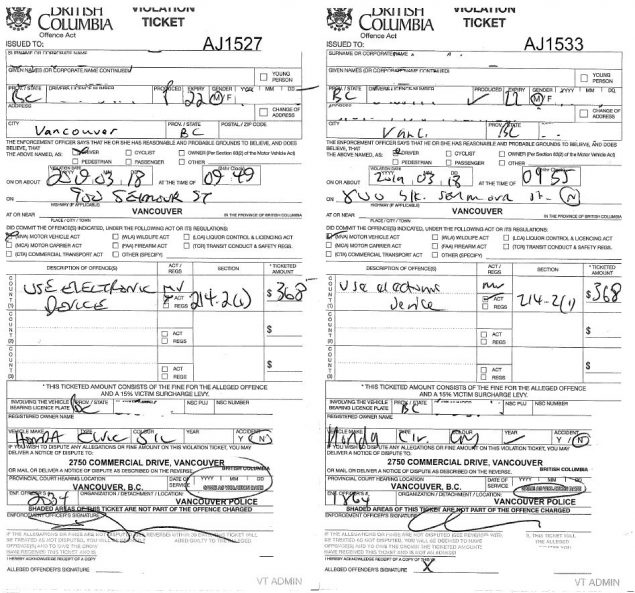 BRITISH
COLUMBIA
Offence Act
VIOLATION
TICKET
ISSUED TO:
AJ1527
SURNAME OR CORPORATE NAME
GIVEN NAMES (OR CORPORATE NAME CONTINUED)
YOUNG PERSON
PROV./STATE DRIVER'S LICENCE NUMBER PRODUCED EXPIRY GENDER YEAR MM DD
BC 22 M F
ADDRESS
CHANGE OF ADDRESS
CITY PROV./STATE POSTAL / ZIP CODE
Vancouver BC
THE ENFORCEMENT OFFICER SAYS THAT HE OR SHE HAS REASONABLE AND PROBABLE GROUNDS TO BELIEVE, AND DOES
BELIEVE, THAT
THE ABOVE NAMED, AS: DRIVER CYCLIST OWNER (Per Section 83(2) of the Motor Vehicle Act)
PEDESTRIAN PASSENGER OTHER
ON OR ABOUT 2019 03 18 AT THE TIME OF 09:49
ON 900 SEYMOUR ST
HIGHWAY IF APPLICABLE
AT OR NEAR VANCOUVER IN THE PROVINCE OF BRITISH COLUMBIA
PLACE / CITY / TOWN
DID COMMIT THE OFFENCE(S) INDICATED, UNDER THE FOLLOWING ACT OR ITS REGULATIONS:
(MVA) MOTOR VEHICLE ACT (WLA) WILDLIFE ACT (LCA) LIQUOR CONTROL & LICENCING ACT
(MCA) MOTOR CARRIER ACT (FAA) FIREARM ACT (TCR) TRANSIT CONDUCT & SAFETY REGS.
(CTA) COMMERCIAL TRANSPORT ACT OTHER (SPECIFY)
DESCRIPTION OF OFFENCE(S) ACT / REGS SECTION * TICKETED AMOUNT
COUNT (1) USE ELECTRONIC DEVICE MV ACT REGS 214.2(1) $368
COUNT (2) ACT REGS $
COUNT (3) ACT REGS $
* THIS TICKETED AMOUNT CONSISTS OF THE FINE FOR THE ALLEGED OFFENCE
AND A 15% VICTIM SURCHARGE LEVY.
INVOLVING THE VEHICLE BEARING LICENCE PLATE PROV / STATE NSC PUJ NSC NUMBER
BC
REGISTERED OWNER NAME
VEHICLE MAKE YEAR ACCIDENT
HONDA CIVIC Y N
IF YOU WISH TO DISPUTE ANY ALLEGATIONS OR FINE AMOUNT ON THIS VIOLATION TICKET, YOU MAY
DELIVER A NOTICE OF DISPUTE TO:
2750 COMMERCIAL DRIVE, VANCOUVER
BRITISH COLUMBIA
OR MAIL OR DELIVER A NOTICE OF DISPUTE AS DESCRIBED ON THE REVERSE.
PROVINCIAL COURT HEARING LOCATION DATE OF SERVICE YYYY MM DD
VANCOUVER, B.C.
ENF. OFFICER'S ORGANIZATION / DETACHMENT / LOCATION:
VANCOUVER POLICE
SHADED AREAS OF THIS TICKET ARE NOT PART OF THE OFFENCE CHARGED
ENFORCEMENT OFFICER'S SIGNATURE
I HEREBY ACKNOWLEDGE RECEIPT OF A COPY
ALLEGED OFFENDER'S SIGNATURE
VT ADMIN
BRITISH
COLUMBIA
Offence Act
VIOLATION
TICKET
ISSUED TO:
AJ1533
SURNAME OR CORPORATE NAME
GIVEN NAMES (OR CORPORATE NAME CONTINUED)
YOUNG PERSON
PROV./STATE DRIVER'S LICENCE NUMBER PRODUCED EXPIRY GENDER YEAR MM DD
BC M F
ADDRESS
CHANGE OF ADDRESS
CITY PROV./STATE POSTAL / ZIP CODE
BC
THE ENFORCEMENT OFFICER SAYS THAT HE OR SHE HAS REASONABLE AND PROBABLE GROUNDS TO BELIEVE, AND DOES
BELIEVE, THAT
THE ABOVE NAMED, AS: DRIVER CYCLIST OWNER (Per Section 83(2) of the Motor Vehicle Act)
PEDESTRIAN PASSENGER OTHER
ON OR ABOUT 2019 03 18 AT THE TIME OF 09 55
ON 800 blk. st. N
HIGHWAY IF APPLICABLE
AT OR NEAR VANCOUVER IN THE PROVINCE OF BRITISH COLUMBIA
PLACE / CITY / TOWN
DID COMMIT THE OFFENCE(S) INDICATED, UNDER THE FOLLOWING ACT OR ITS REGULATIONS:
(MVA) MOTOR VEHICLE ACT (WLA) WILDLIFE ACT (LCA) LIQUOR CONTROL & LICENCING ACT
(MCA) MOTOR CARRIER ACT (FAA) FIREARM ACT (TCR) TRANSIT CONDUCT & SAFETY REGS.
(CTA) COMMERCIAL TRANSPORT ACT OTHER (SPECIFY)
DESCRIPTION OF OFFENCE(S) ACT / REGS SECTION * TICKETED AMOUNT
COUNT (1) Use device mv ACT REGS 214-2(1) $368
COUNT (2) ACT REGS $
COUNT (3) ACT REGS $
* THIS TICKETED AMOUNT CONSISTS OF THE FINE FOR THE ALLEGED OFFENCE
AND A 15% VICTIM SURCHARGE LEVY.
INVOLVING THE VEHICLE BEARING LICENCE PLATE PROV / STATE NSC PUJ NSC NUMBER
BC
REGISTERED OWNER NAME
VEHICLE MAKE YEAR ACCIDENT
Honda Y N
IF YOU WISH TO DISPUTE ANY ALLEGATIONS OR FINE AMOUNT ON THIS VIOLATION TICKET, YOU MAY
DELIVER A NOTICE OF DISPUTE TO:
2750 COMMERCIAL DRIVE, VANCOUVER
BRITISH COLUMBIA
OR MAIL OR DELIVER A NOTICE OF DISPUTE AS DESCRIBED ON THE REVERSE.
PROVINCIAL COURT HEARING LOCATION DATE OF SERVICE YYYY MM DD
VANCOUVER, B.C.
ENF. OFFICER'S ORGANIZATION / DETACHMENT / LOCATION:
VANCOUVER POLICE
SHADED AREAS OF THIS TICKET ARE NOT PART OF THE OFFENCE CHARGED
ENFORCEMENT OFFICER'S SIGNATURE
I HEREBY ACKNOWLEDGE RECEIPT OF A COPY
ALLEGED OFFENDER'S SIGNATURE X
VT ADMIN